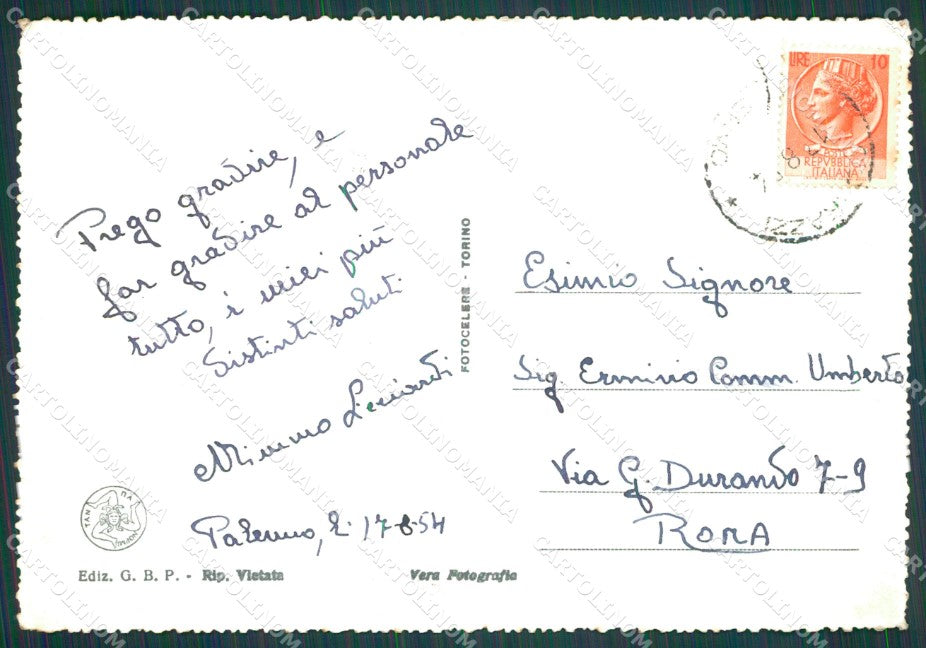 Prego gradire, e
far gradire al personale
tutto, i miei più
distinti saluti
Mimmo
Palermo, li 17-8-54
Ediz. G. B. P. - Rip. Vietata
Vera Fotografia
FOTOCELERE - TORINO
LIRE 10
POSTE
REPVBBLICA
ITALIANA
Esimio Signore
Sig. Erminio Comm. Umberto
Via G. Durando 7-9
ROMA
CARTOLINOMANIA